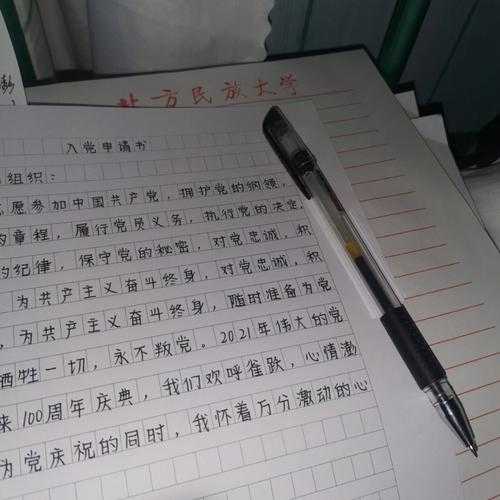 北方民族大学
入党申请书
组织：
愿参加中国共产党，拥护党的纲领，
章程，履行党员义务，执行党的决定，
的纪律，保守党的秘密，对党忠诚，积
为共产主义奋斗终身，对党忠诚，积
，为共产主义奋斗终身，随时准备为党
牺牲一切，永不叛党。2021年伟大的党
来100周年庆典，我们欢呼雀跃，心情澎
为党庆祝的同时，我怀着万分激动的心